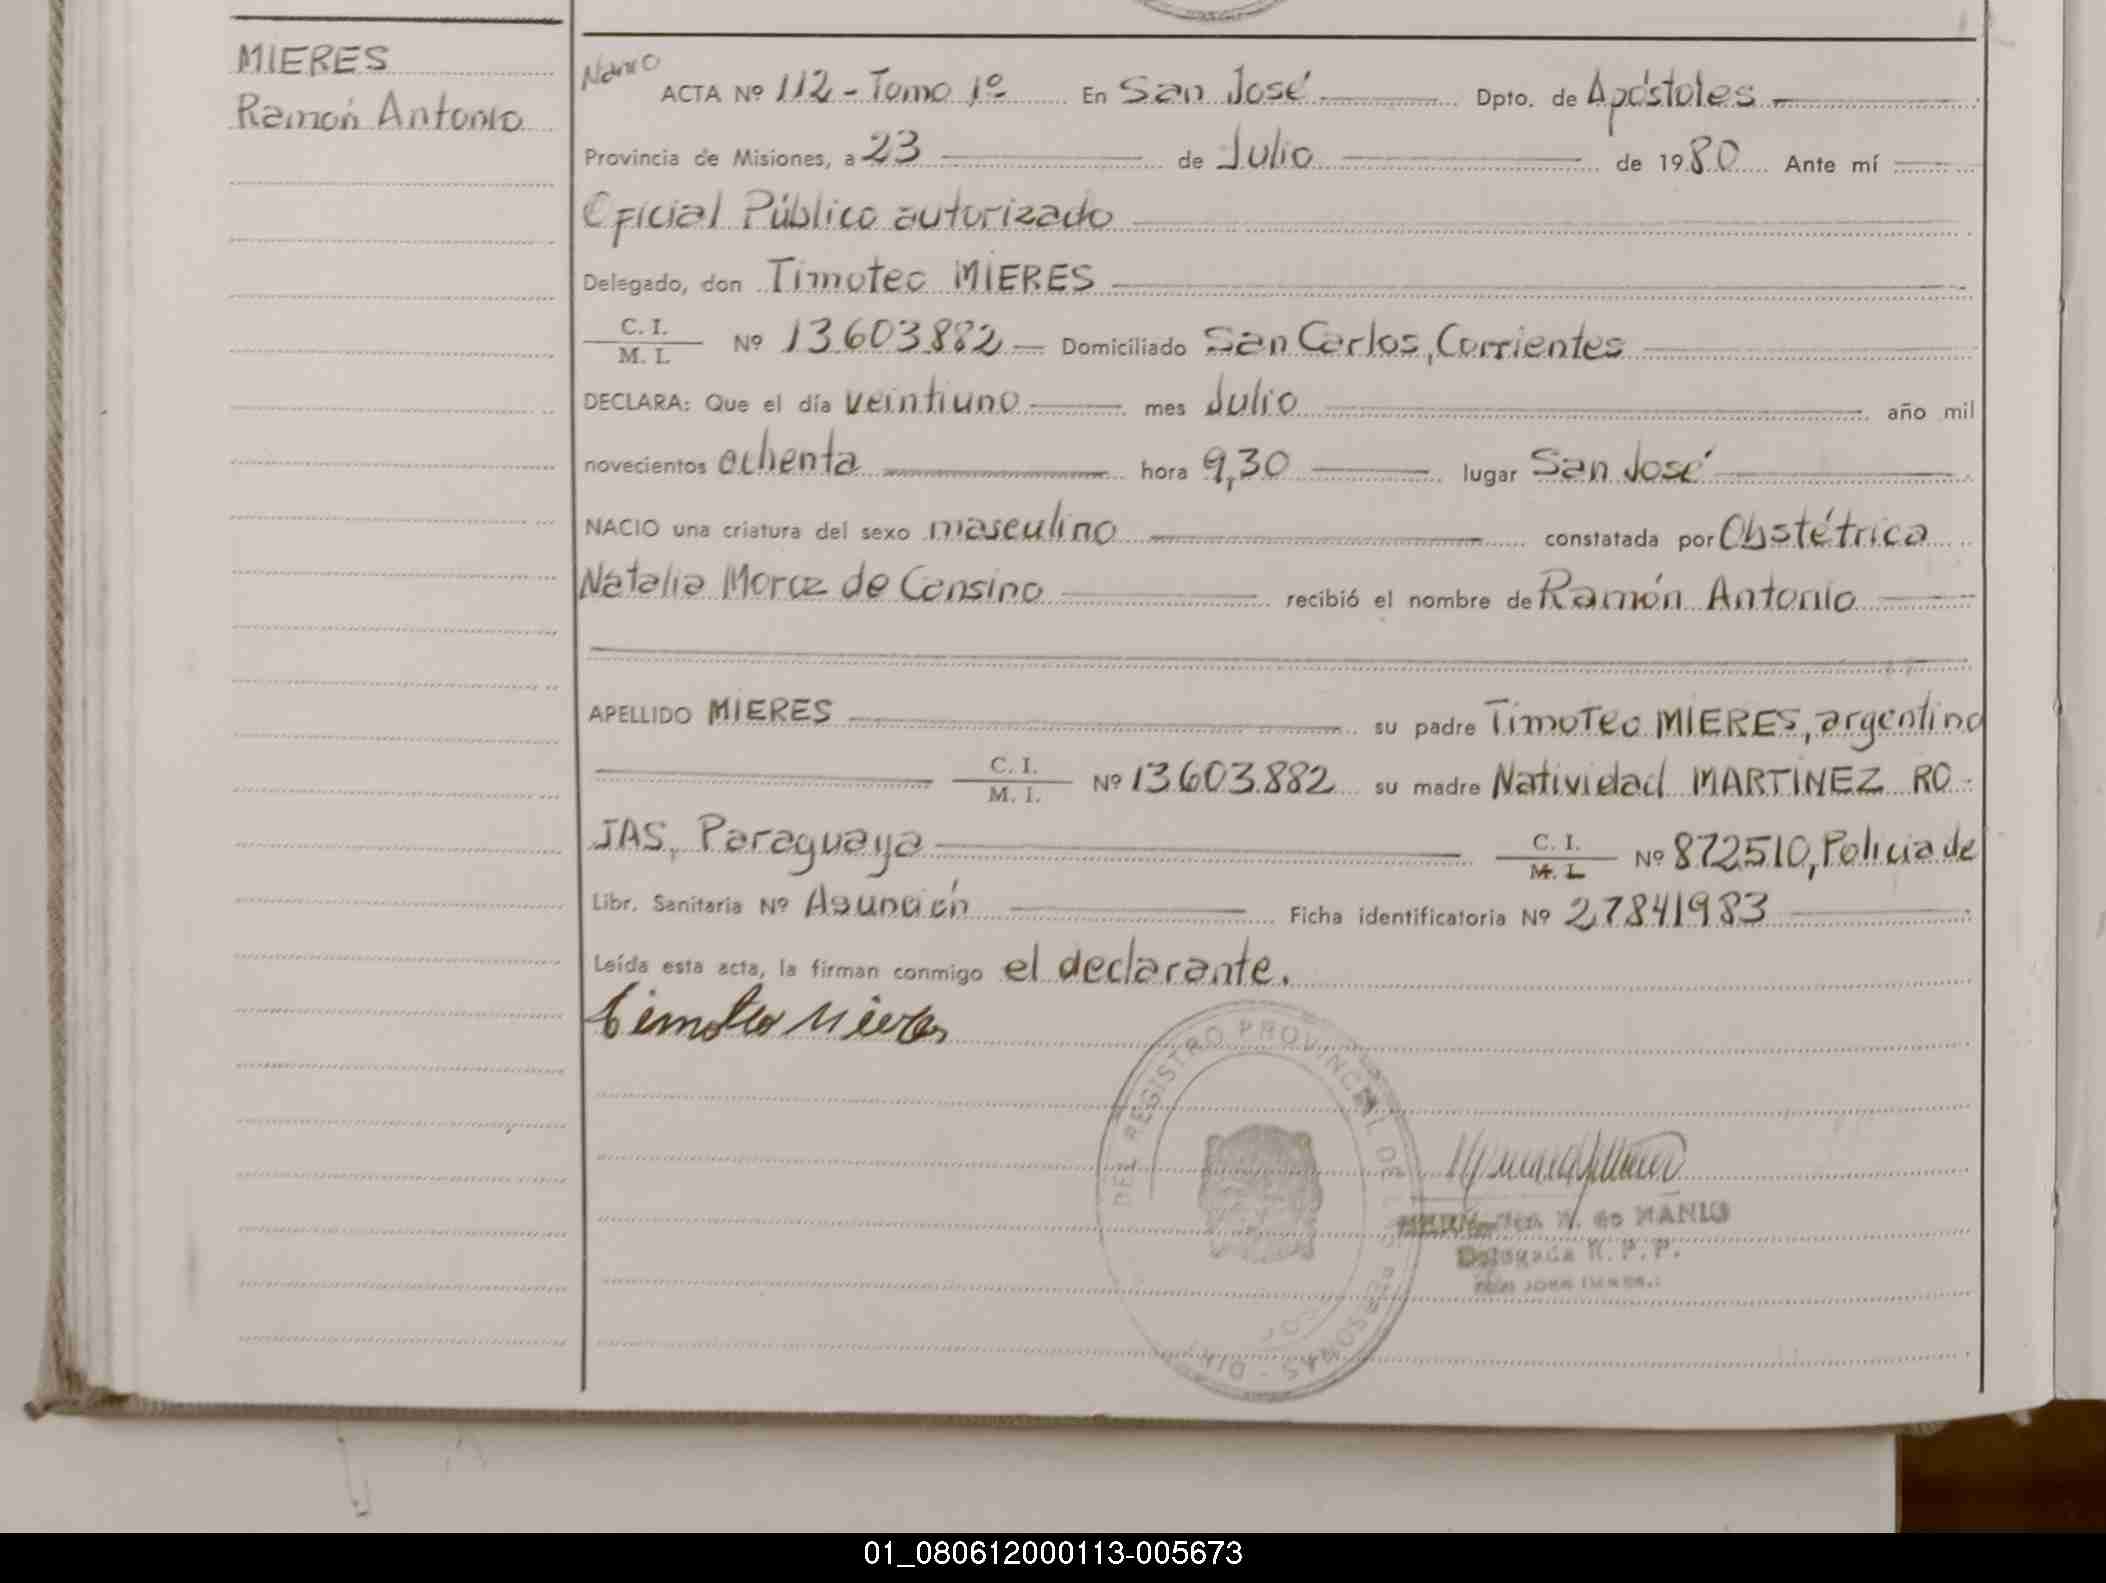 MIERES
Ramón Antonio
ACTA Nº 112 - Tomo 1º En San José Dpto. de Apóstoles
Provincia de Misiones, a 23 de Julio de 1980 Ante mí
Oficial Público autorizado
Delegado, don Timoteo MIERES
C. I.
M. I. Nº 13603882 Domiciliado San Carlos, Corrientes
DECLARA: Que el día veintiuno mes Julio año mil
novecientos ochenta hora 9,30 lugar San José
NACIO una criatura del sexo masculino constatada por Obstétrica
Natalia Moroz de Cansino recibió el nombre de Ramón Antonio
APELLIDO MIERES su padre Timoteo MIERES, argentino
C. I.
M. I. Nº 13603882 su madre Natividad MARTINEZ RO-
JAS, Paraguaya C. I.
M. I. Nº 872510, Policia de
Libr. Sanitaria Nº Asunción Ficha identificatoria Nº 27841983
Leída esta acta, la firman conmigo el declarante.
Timoteo Mieres
DEL REGISTRO PROVINCIAL DE LAS PERSONAS - DIR
de MANLO
Delegada R. P. P.
01_080612000113-005673